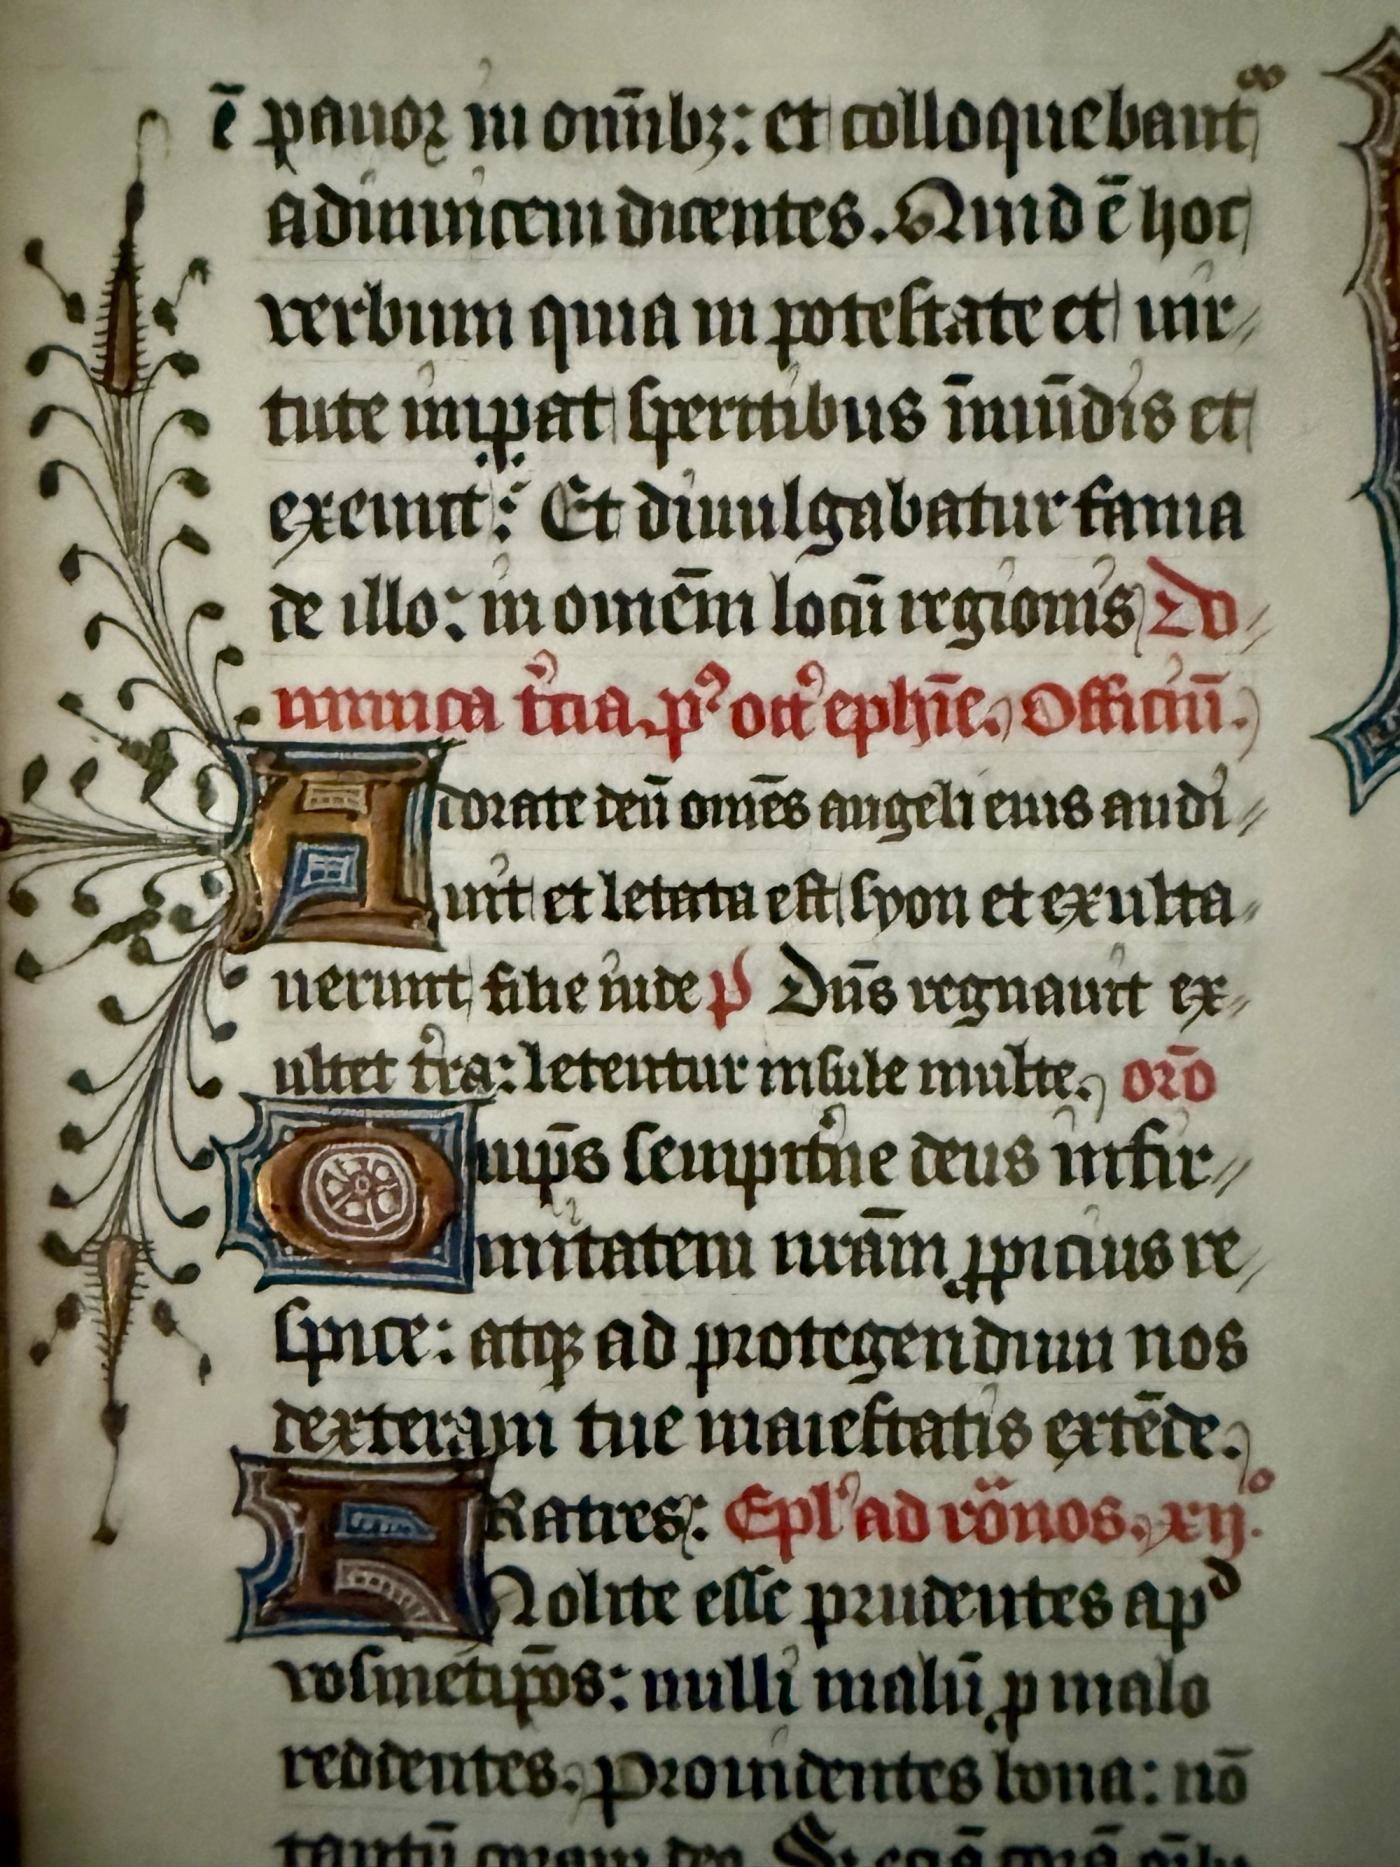 ē pauor in om̄ibꝫ: et colloquebantᷣ
adinuicem dicentes. Quid ē hoc
verbum quia in potestate et uir⸗
tute imꝑat speritibus īmūdis et
exeunt: Et diuulgabatur fama
de illo: in omēm locū regionis Do⸗
minica t̾cia. p⁹ oct̾ epħie. Officiū.
Adorate deū om̄es angeli eius audi⸗
uit et letata est syon et exulta⸗
uerunt filie iude p̃ Dn̄s regnauit ex⸗
ultet t̾ra: letentur insule multe. oro̅
Omp̄s sempit̾ne deus infir⸗
mitatem nr̄am ꝓpicius re⸗
spice: atqꝫ ad protegendum nos
dexteram tue maiestatis extēde.
FRatres: Epl̾ ad ro̅nos. xij°.
Nolite esse prudentes apᵈ
vosmetip̄os: nulli malū ꝓ malo
reddentes. Prouidentes bona: nō
tantū coram deo. Si